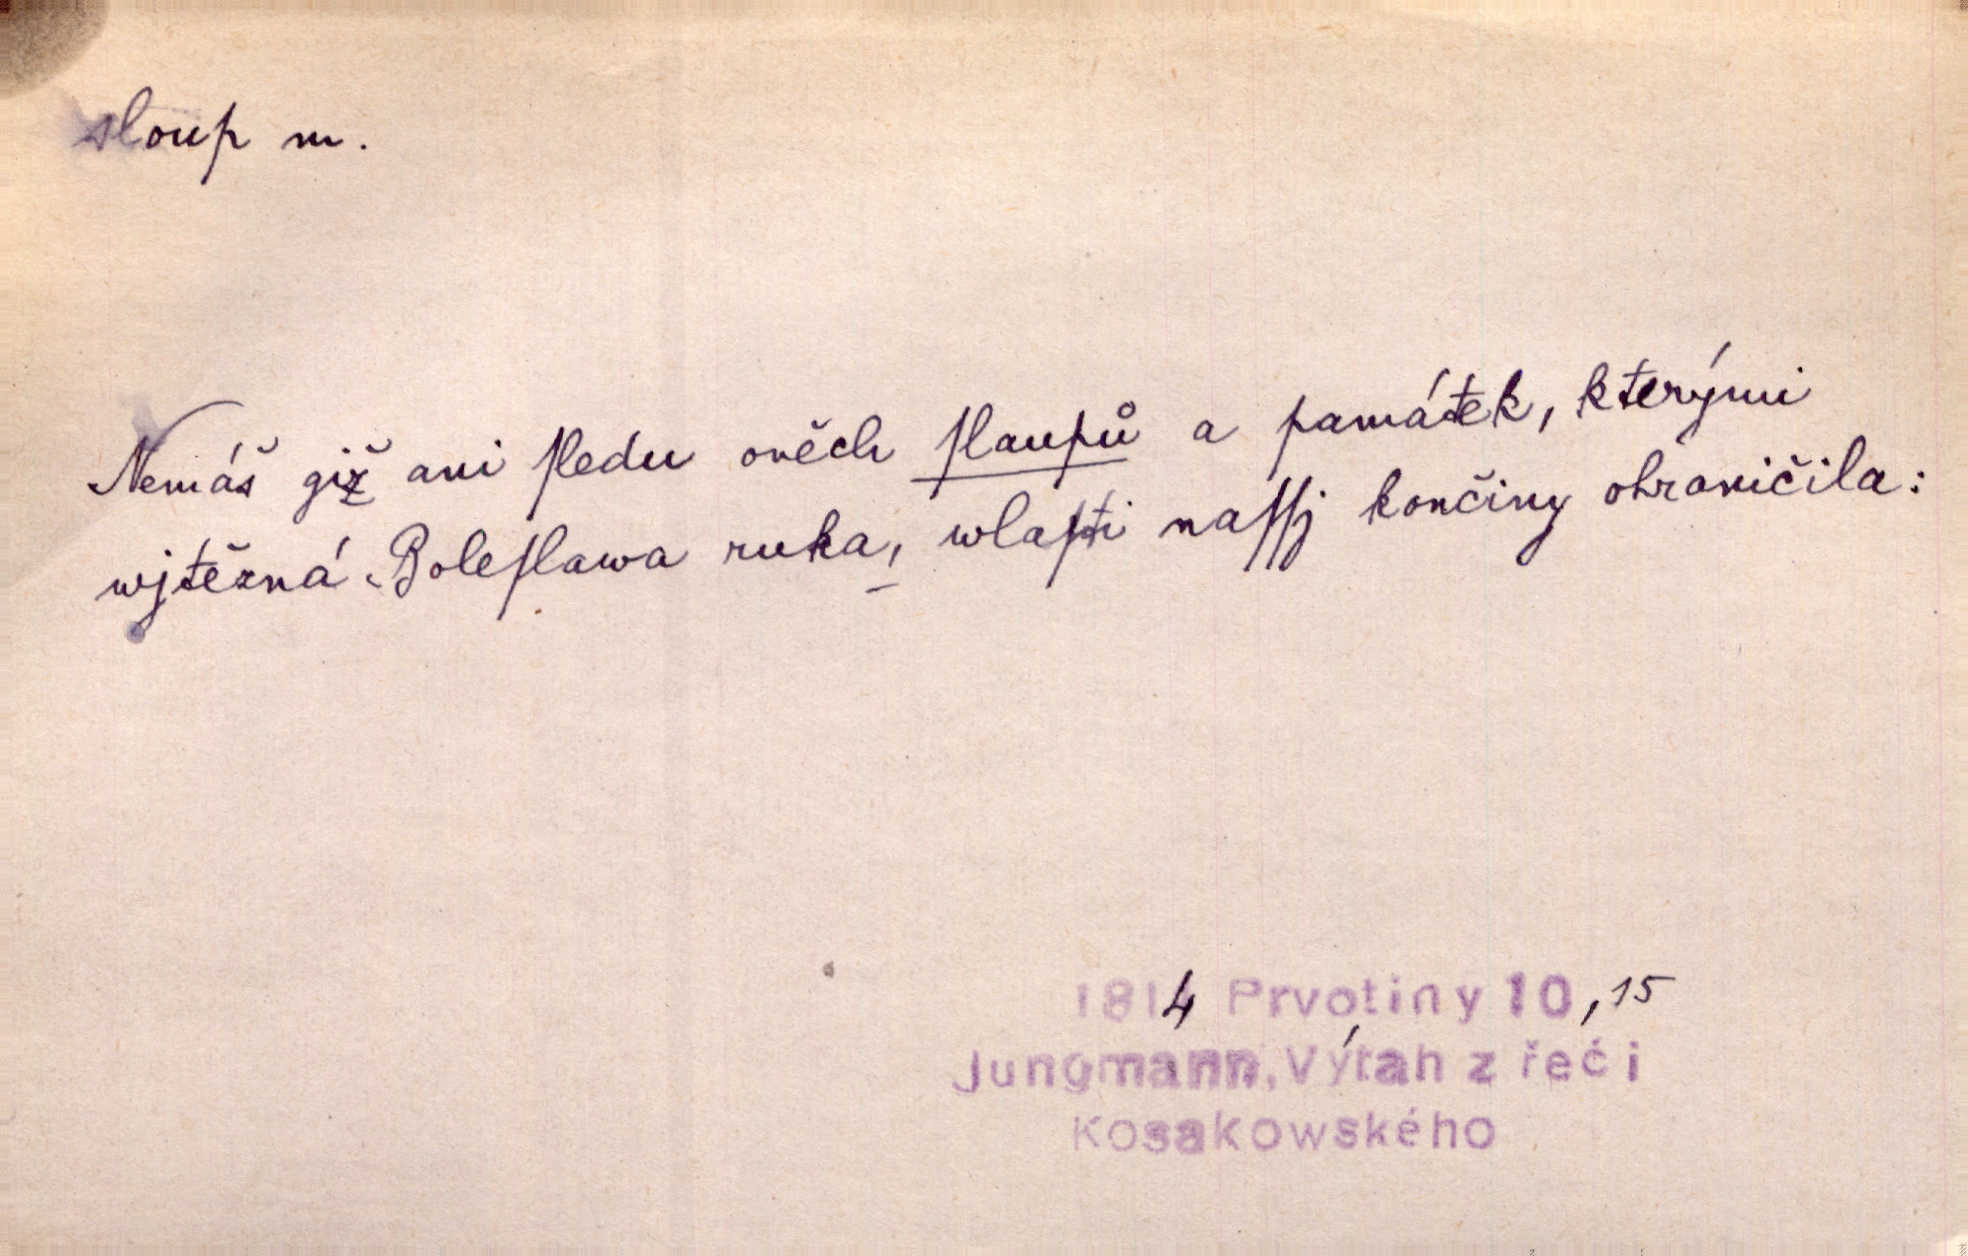 sloup m.
Nemáš giž ani ſledu oněch ſlaupů a památek, kterými
wjtězná Boleſlawa ruka, wlaſti naſſj končiny ohraničila:
1814 Prvotiny 10, 15
Jungmann, Výtah z řeči
Kosakowského